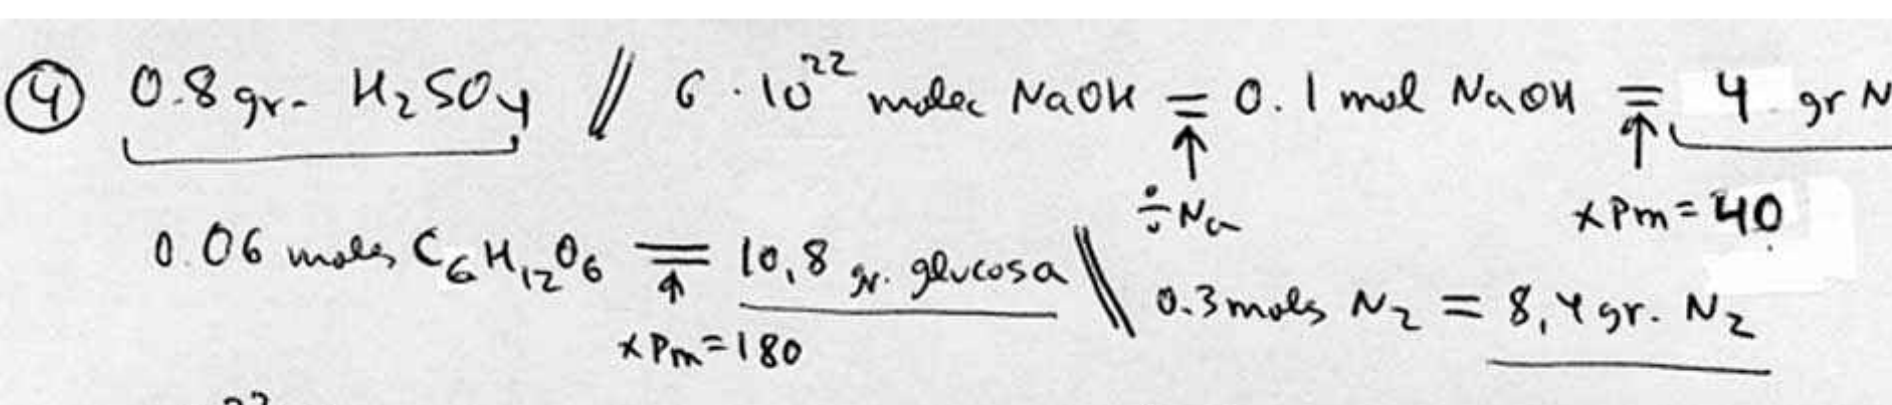 ④ 0.8 gr. H₂SO₄ // 6 · 10²² molec NaOH = 0.1 mol NaOH = 4 gr N
÷ Na x Pm = 40
0.06 moles C₆H₁₂O₆ = 10,8 gr. glucosa \\ 0.3 moles N₂ = 8,4 gr. N₂
x Pm = 180
23